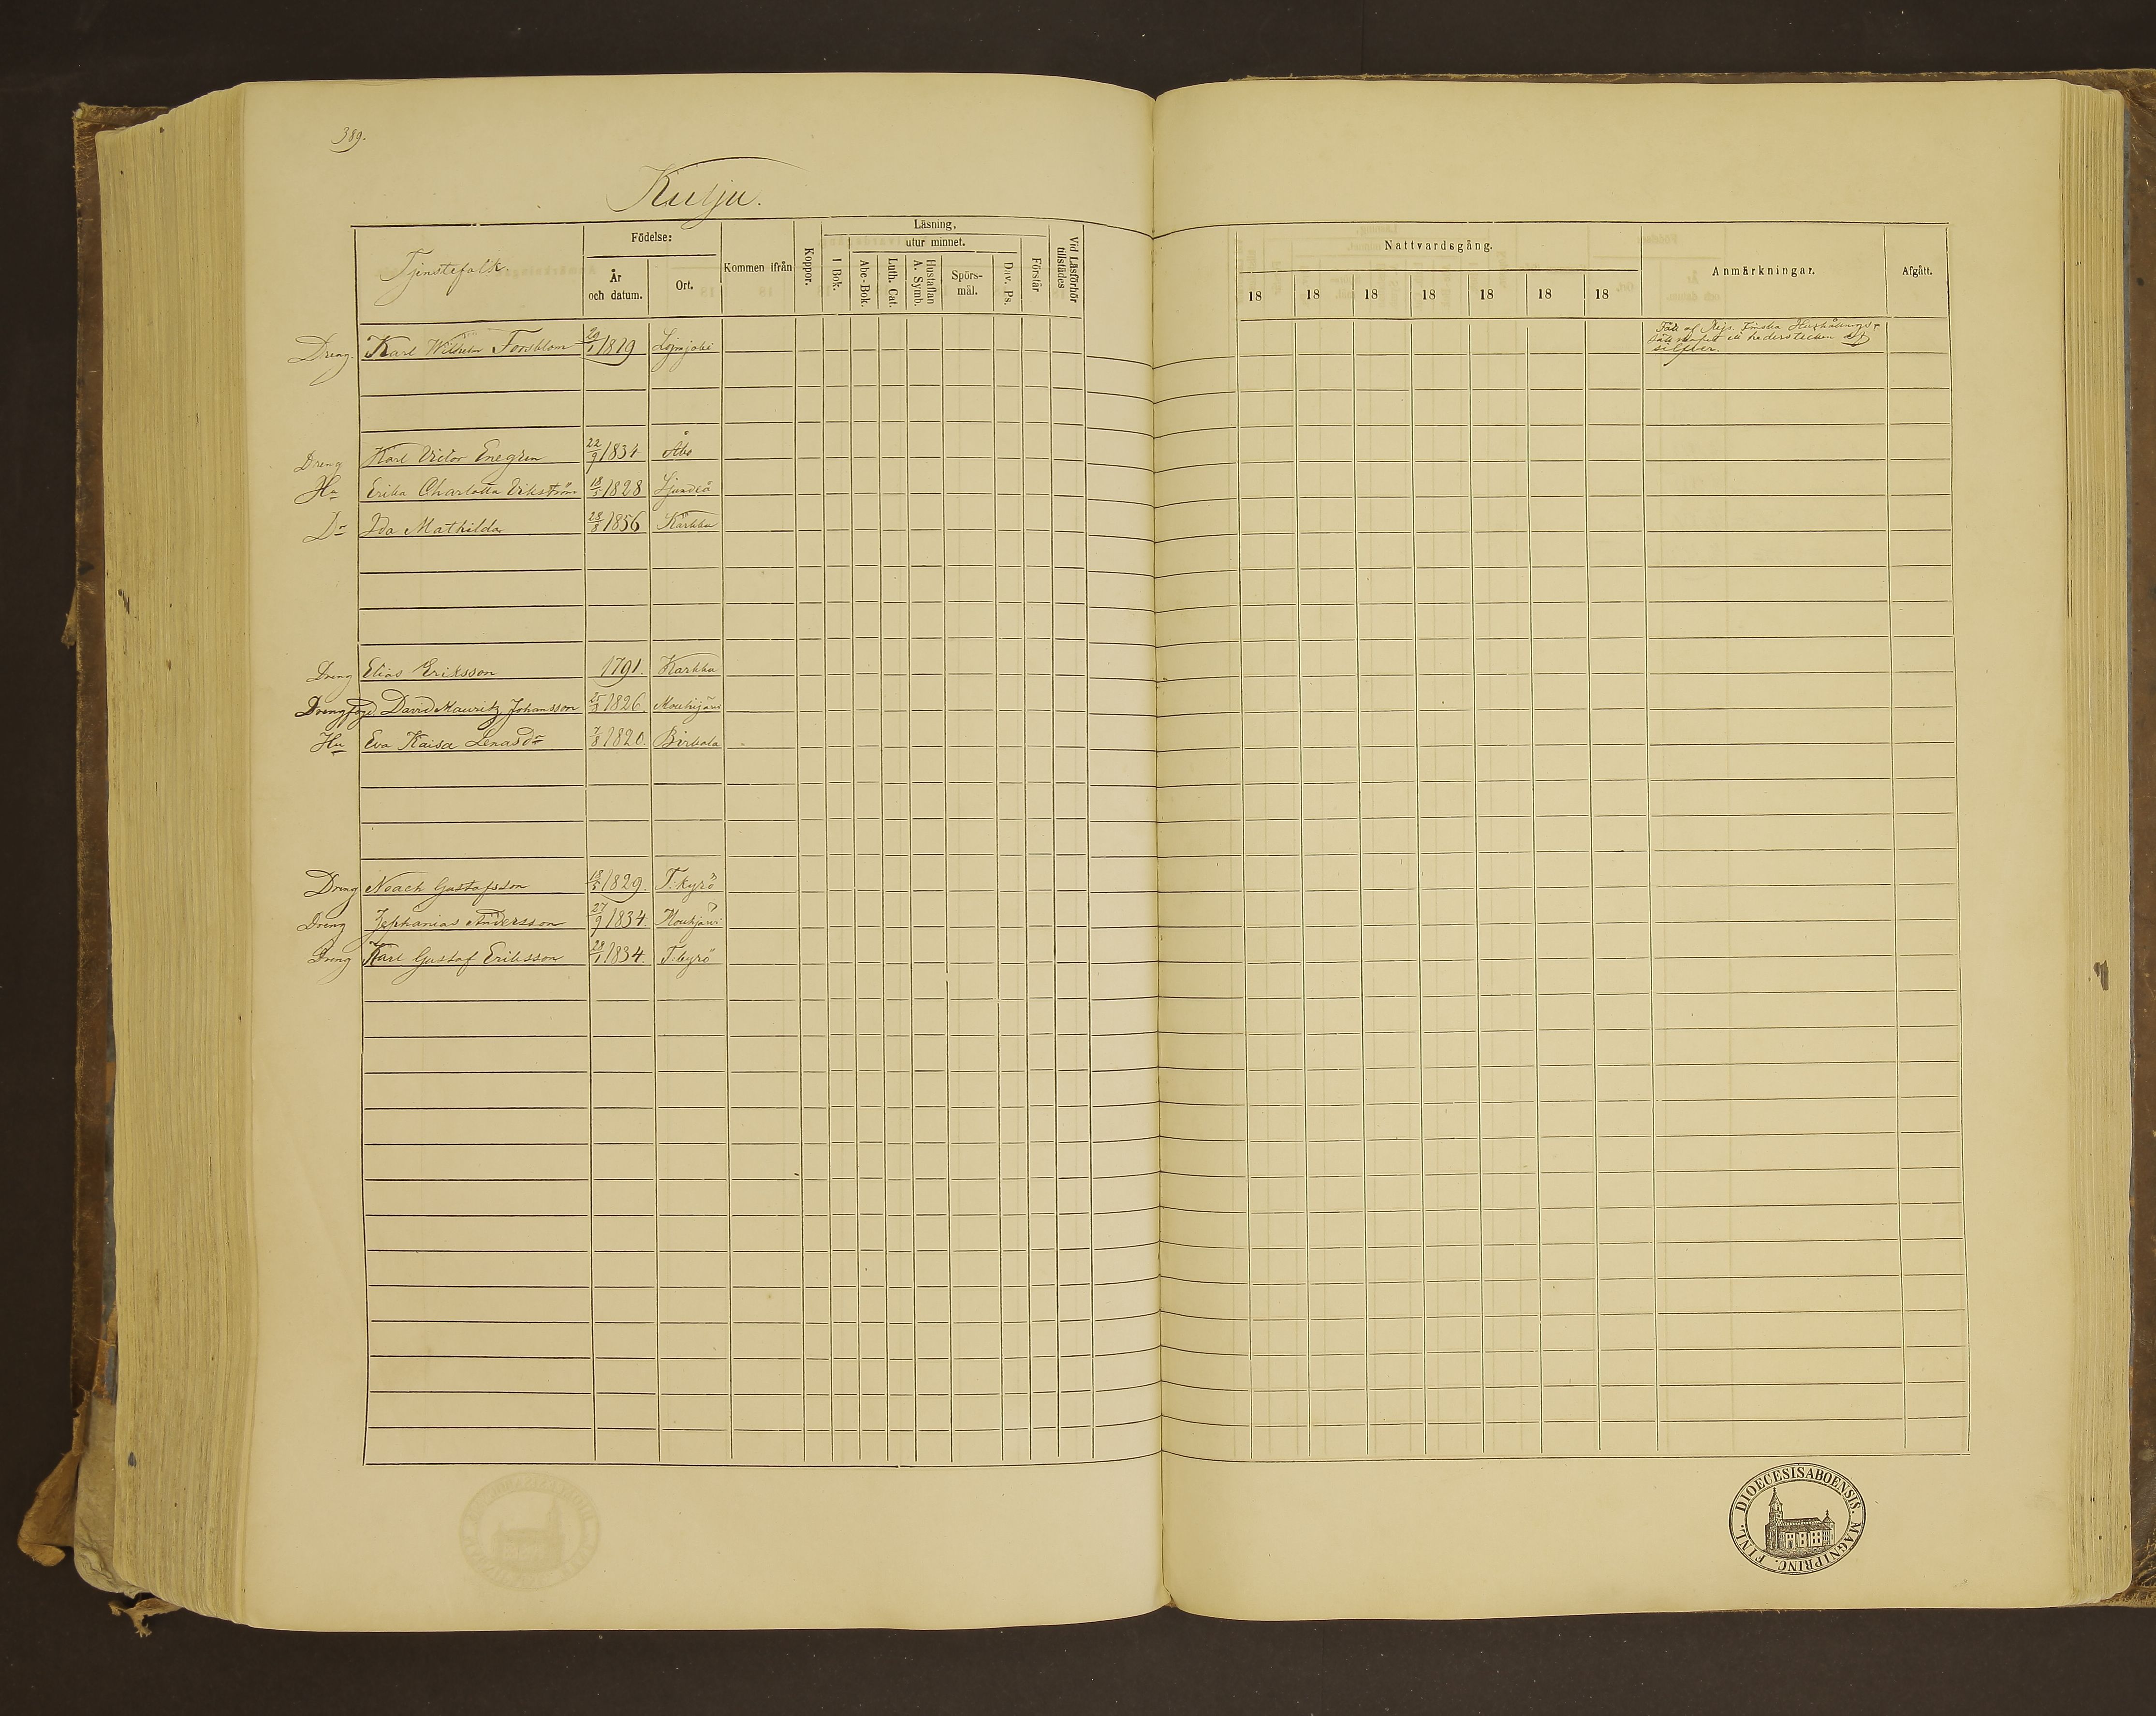 389.
Kulju.
Tjenstefolk.
Födelse:
År
och datum.
Ort.
Kommen ifrån
Koppor.
Läsning,
utur minnet.
I Bok.
Abc-Bok.
Luth. Cat.
Hustaflan
A. Symb.
Spörs-
mål.
Dav. Ps.
Förstår
Vid Läsförhör
tillstädes
Nattvardsgång.
18 18 18 18 18 18 18
Anmärkningar.
Afgått.
Dreng. Karl Wilhelm Forsblom 20/1 1819 Loimjoki
Fått af Kejs. Finska Hushållnings-
Sällskapet ett hederstecken af
silfver.
Dreng Karl Victor Enegren 22/9 1834 Åbo
Hu Erika Charlotta Vikström 18/5 1828 Sjundeå
Dr Ida Mathilda 23/8 1856 Karkku
Dreng Elias Eriksson 1791. Karkku
Drengfogd. David Mauritz Johansson 25/3 1826. Mouhijärvi
Hu Eva Kaisa Lenasdr 7/8 1820. Birkala
Dreng Noach Gustafsson 18/5 1829. T:kyrö
Dreng Zephanias Andersson 27/9 1834. Mouhijärvi
Dreng Karl Gustaf Eriksson 28/1 1834. T:kyrö
DIOECESIS ABOENSIS. MAGNI PRINC. FINL.